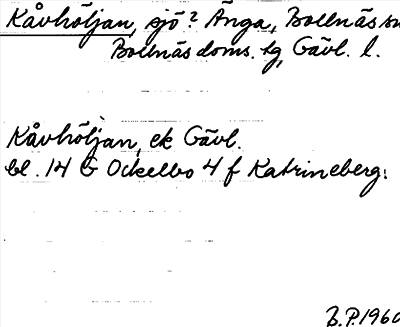 Kåvhöljan, sjö? Änga, Bollnäs sn
Bollnäs doms. tg, Gävl. l.
Kåvhöljan, ek Gävl.
bl. 14 G Ockelbo 4 f Katrineberg.
B.P. 1960